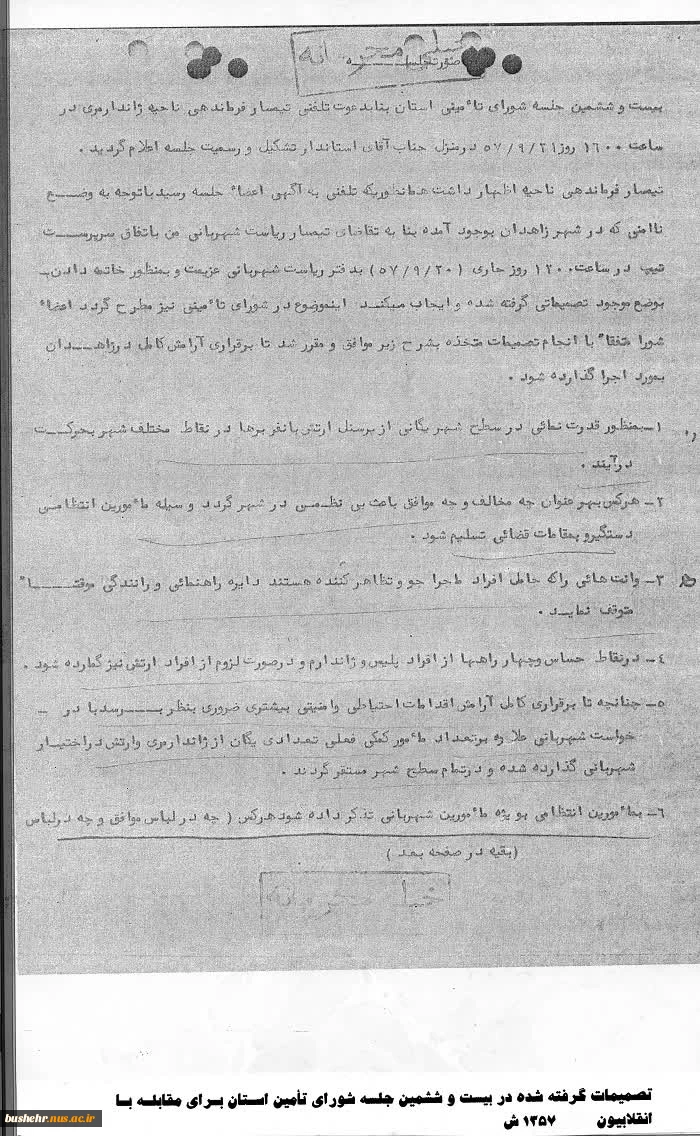 خیلی محرمانه
صورتجلسه
بیست و ششمین جلسه شورای تاٴمینی استان بنابدعوت تلفنی تیمسار فرماندهی ناحیه ژاندارمری در
ساعت ۱۶۰۰ روز ۵۷/۹/۲۱ درمنزل جناب آقای استاندار تشکیل و رسمیت جلسه اعلام گردید .
تیمسار فرماندهی ناحیه اظهار داشت همانطوریکه تلفنی به آگهی اعضاٴ جلسه رسید باتوجه به وضع
ناامنی که در شهر زاهدان بوجود آمده بنا به تقاضای تیمسار ریاست شهربانی من باتفاق سرپرست
تیپ در ساعت ۱۲۰۰ روز جاری (۵۷/۹/۲۰) بدفتر ریاست شهربانی عزیمت و بمنظور خاتمه دادن
بوضع موجود تصمیماتی گرفته شده و ایجاب میکند اینموضوع در شورای تاٴمینی نیز مطرح گردد اعضاٴ
شورا متفقا" با انجام تصمیمات متخذه بشرح زیر موافق و مقرر شد تا برقراری آرامش کامل درزاهدان
بمورد اجرا گذارده شود .
۱ـ بمنظور قدرت نمائی در سطح شهر یگانی از پرسنل ارتش بانفربرها در نقاط مختلف شهر بحرکت
درآیند .
۲ـ هرکس بهر عنوان چه مخالف و چه موافق باعث بی نظمی در شهر گردد وسیله ماٴمورین انتظامی
دستگیر و بمقامات قضائی تسلیم شود .
۳ـ وانت هائی راکه حامل افراد ماجرا جو و تظاهر کننده هستند دایره راهنمائی و رانندگی موقتا"
متوقف نماید .
۴ـ درنقاط حساس و چهار راهها از افراد پلیس و ژاندارم و درصورت لزوم از افراد ارتش نیز گمارده شود .
۵ـ چنانچه تا برقراری کامل آرامش اقدامات احتیاطی وامنیتی بیشتری ضروری بنظر برسد با در ـ
خواست شهربانی علاوه برتعداد ماٴمور کمکی فعلی تعدادی یگان از ژاندارمری وارتش دراختیار
شهربانی گذارده شده و درتمام سطح شهر مستقر گردند .
۶ـ بماٴمورین انتظامی بویژه ماٴمورین شهربانی تذکر داده شود هرکس ( چه در لباس موافق و چه درلباس
(بقیه در صفحه بعد )
خیلی محرمانه
تصمیمات گرفته شده در بیست و ششمین جلسه شورای تأمین استان برای مقابله با
انقلابیون ۱۳۵۷ ش
bushehr.nus.ac.ir